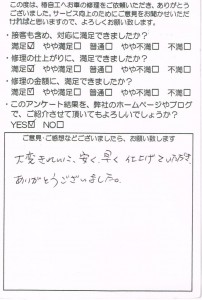 この度は、極自工へお車の修理をご依頼いただき、ありがとう
ございました。サービス向上のためにご意見をお聞かせいただ
ければと思いますので、よろしくお願い致します。
・接客も含め、対応に満足できましたか?
満足☑ やや満足□ 普通□ やや不満□ 不満□
・修理の仕上がりに、満足できましたか?
満足☑ やや満足□ 普通□ やや不満□ 不満□
・修理の金額に、満足できましたか?
満足☑ やや満足□ 普通□ やや不満□ 不満□
・このアンケート結果を、弊社のホームページやブログ
で、ご紹介させて頂いてもよろしいでしょうか?
YES☑ NO□
ご意見・ご感想などございましたら、お願い致します
大変きれいに、安く、早く 仕上げていただき、
ありがとうございました。